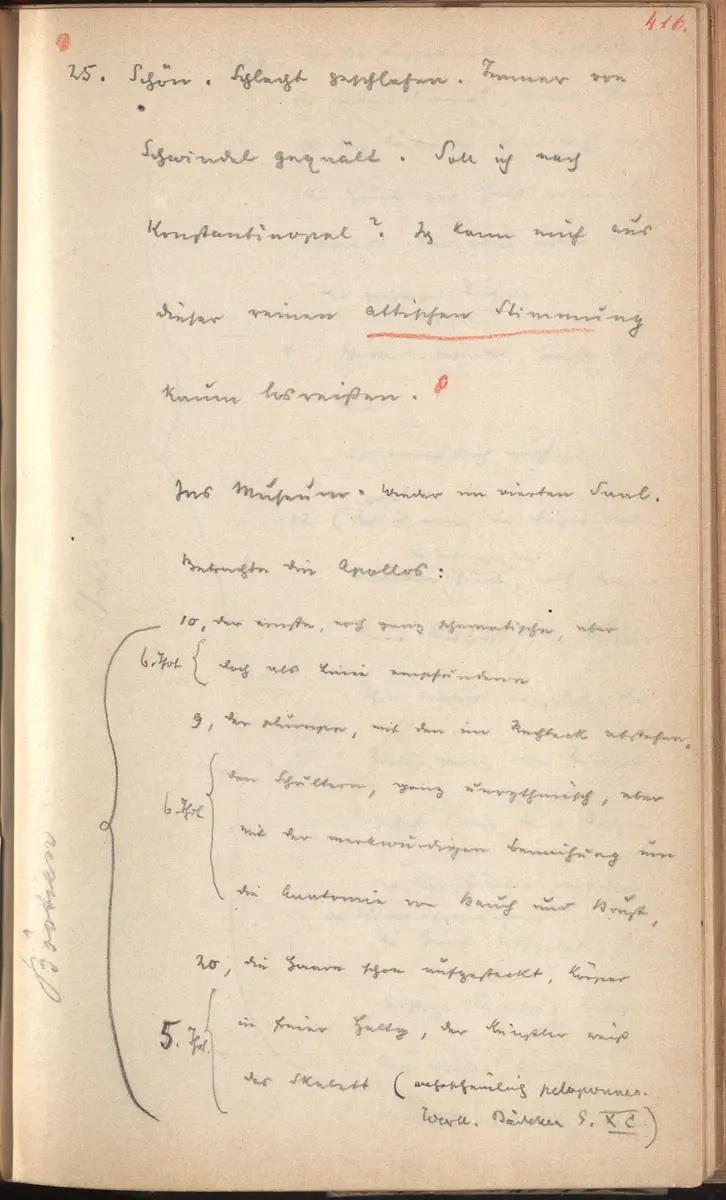 416.
25. Schön. Schlecht geschlafen. Immer von
Schwindel gequält. Soll ich nach
Konstantinopel? Ich kann mich aus
dieser reinen attischen Stimmung
kaum losreißen.
Ins Museum. Wieder im vierten Saal.
Betrachte die Apollos:
10, der ernste, noch ganz schematische, aber
6. Jhdt doch als Linie empfundene
9, der plumpe, mit den im Rechteck abstehen-
den Schultern, ganz unrythmisch, aber
6. Jhdt mit der merkwürdigen Bemühung um
die Anatomie von Bauch und Brust,
20, die Haare schon aufgesteckt, Körper
5. Jhdt. in freier Haltg, der Künstler weiß
das Skelett (wahrscheinlich peloponnes.
Werk. Bädeker S. XC)
Apollos